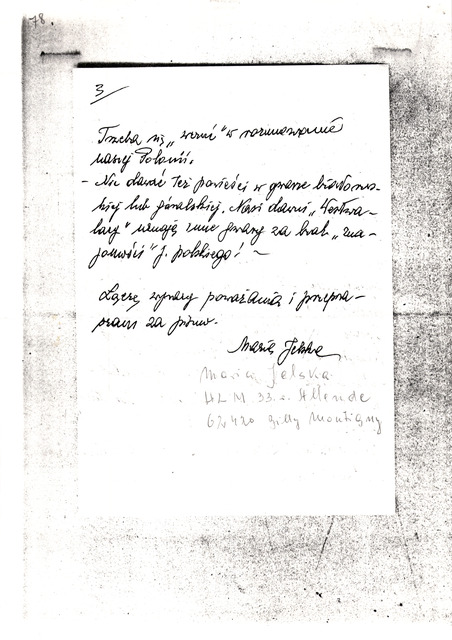 78.
3
Trzeba się „wczuć" w rozumowanie
naszej Polonii.
- Nie dawać też powieści w gwarze białorus-
kiej lub góralskiej. Nasi dawni „Westwa-
lacy" uznają inne gwary za brak „zna-
jomości" j. polskiego! ~
Łączę wyrazy poważania i przepra-
szam za pismo.
Maria Jelska
Maria Jelska
HLM 33. Allende
62420 Billy Montigny